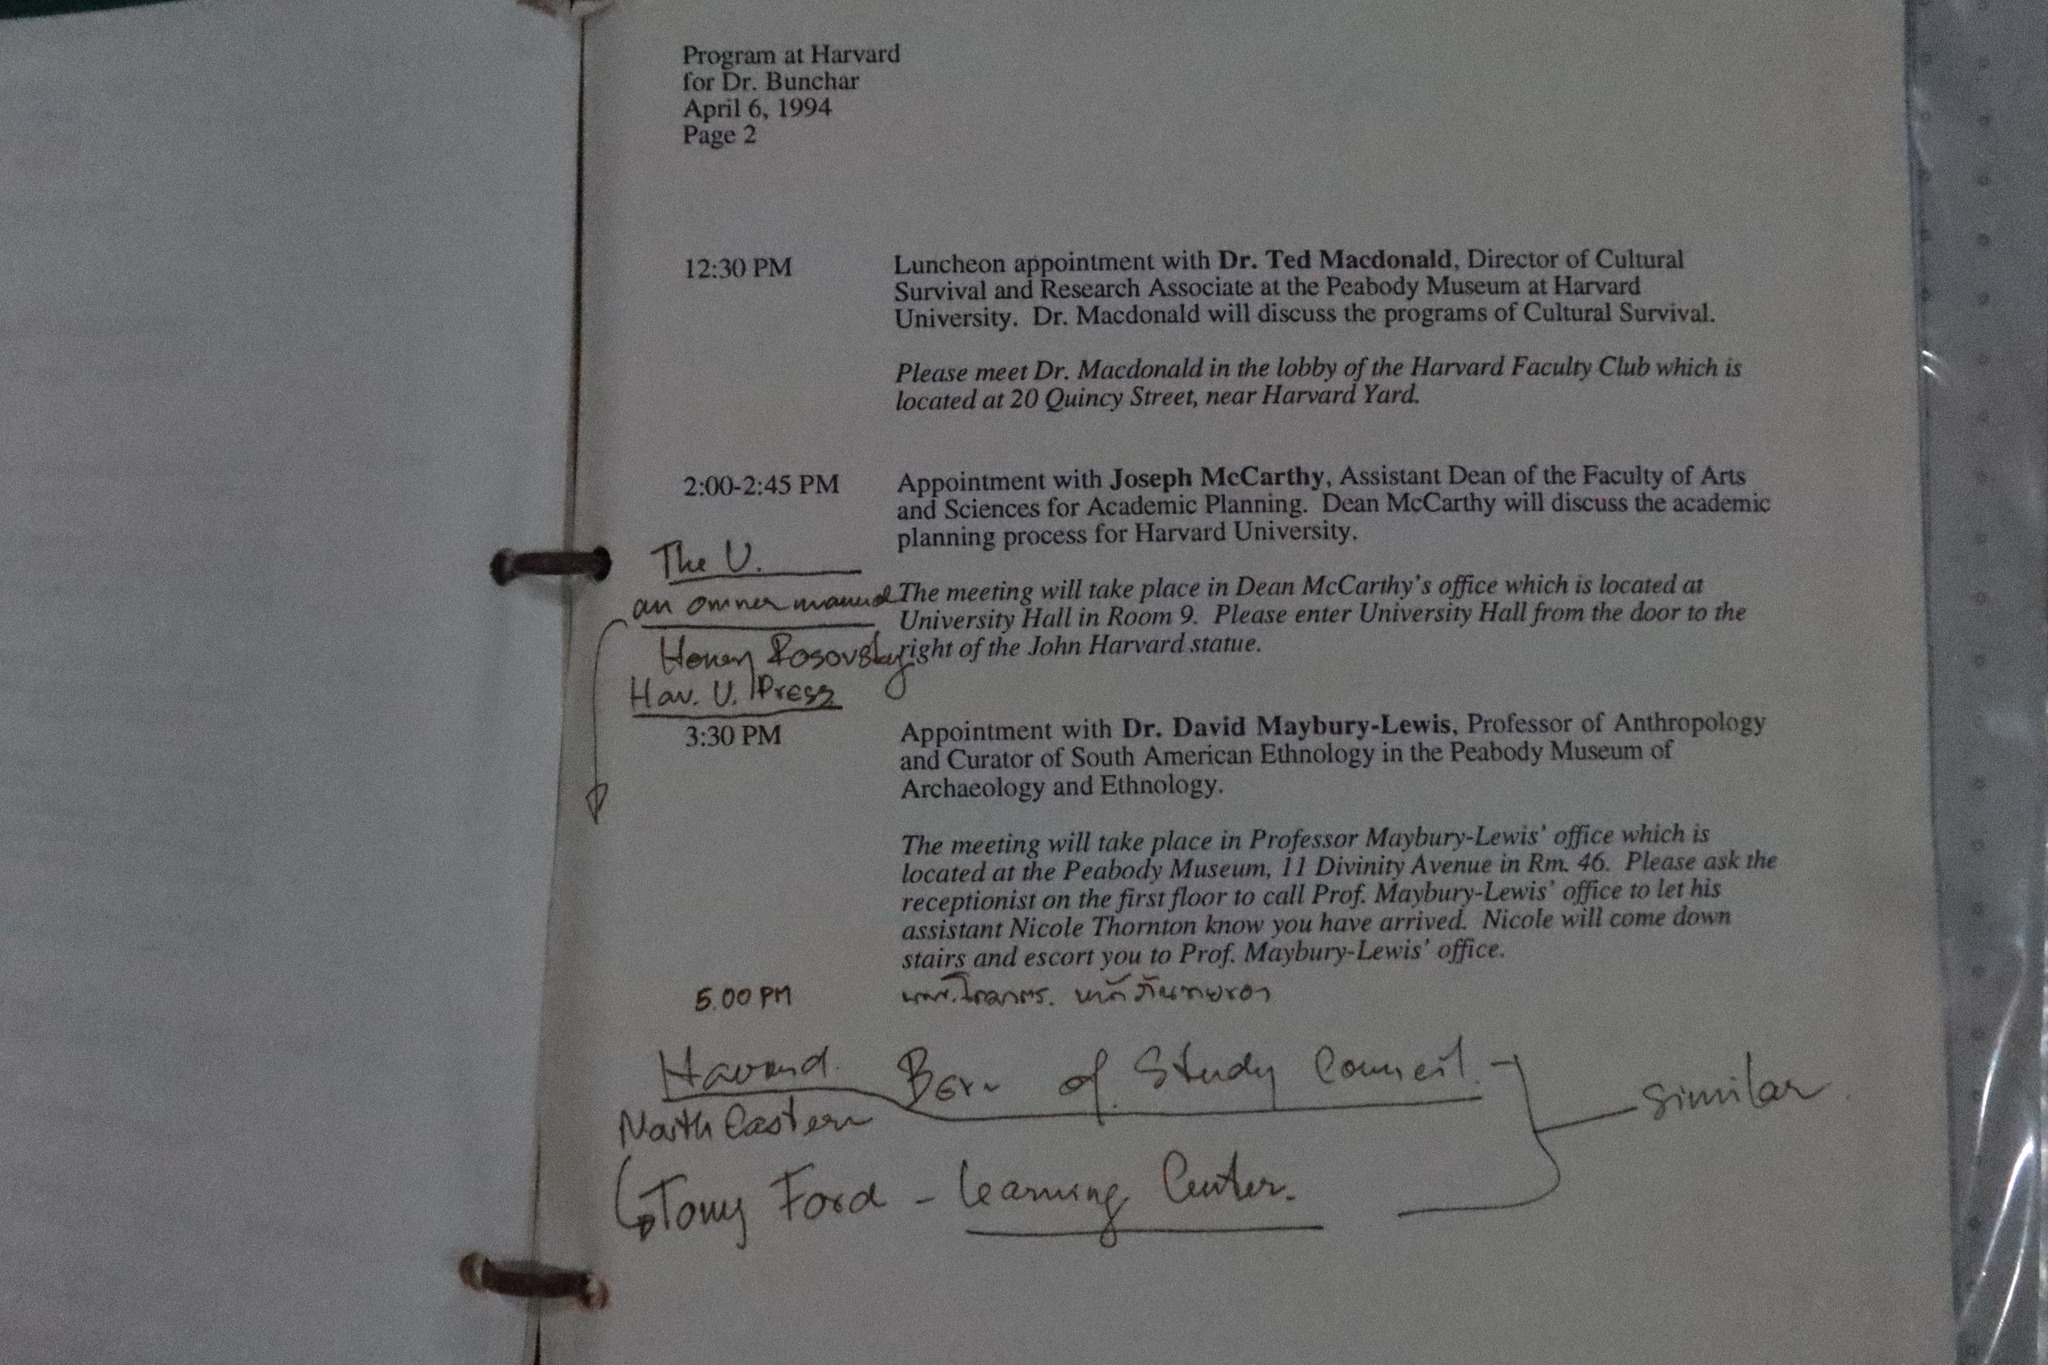 Program at Harvard
for Dr. Bunchar
April 6, 1994
Page 2
12:30 PM Luncheon appointment with Dr. Ted Macdonald, Director of Cultural
Survival and Research Associate at the Peabody Museum at Harvard
University. Dr. Macdonald will discuss the programs of Cultural Survival.
Please meet Dr. Macdonald in the lobby of the Harvard Faculty Club which is
located at 20 Quincy Street, near Harvard Yard.
2:00-2:45 PM Appointment with Joseph McCarthy, Assistant Dean of the Faculty of Arts
and Sciences for Academic Planning. Dean McCarthy will discuss the academic
planning process for Harvard University.
The U.
an owner manual
Henry Rosovsky
Hav. U. Press
The meeting will take place in Dean McCarthy's office which is located at
University Hall in Room 9. Please enter University Hall from the door to the
right of the John Harvard statue.
3:30 PM Appointment with Dr. David Maybury-Lewis, Professor of Anthropology
and Curator of South American Ethnology in the Peabody Museum of
Archaeology and Ethnology.
The meeting will take place in Professor Maybury-Lewis' office which is
located at the Peabody Museum, 11 Divinity Avenue in Rm. 46. Please ask the
receptionist on the first floor to call Prof. Maybury-Lewis' office to let his
assistant Nicole Thornton know you have arrived. Nicole will come down
stairs and escort you to Prof. Maybury-Lewis' office.
5.00 PM
Havard. of Study Council.
North Eastern
Tony Ford - Learning Center.
similar